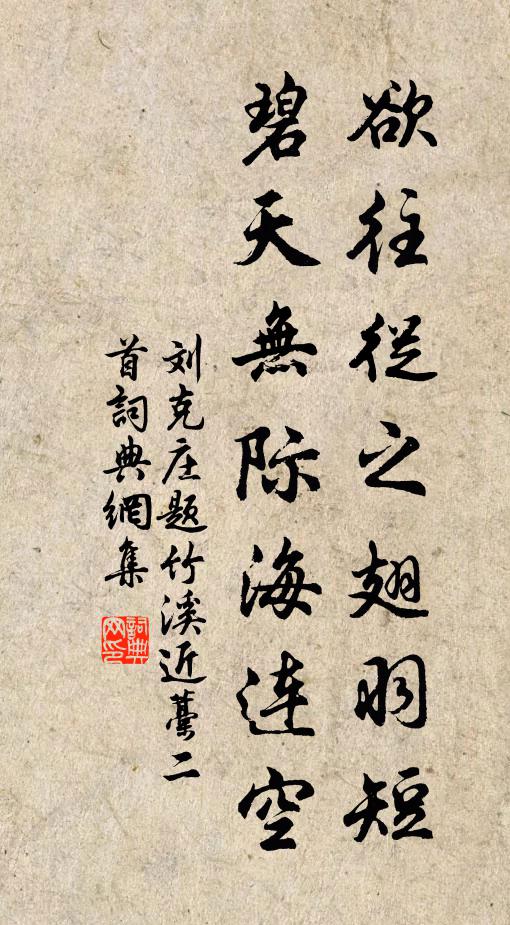 欲往從之翅羽短
碧天無际海連空
刘克庄题竹溪近藳二
首詞典網集
詞典網印